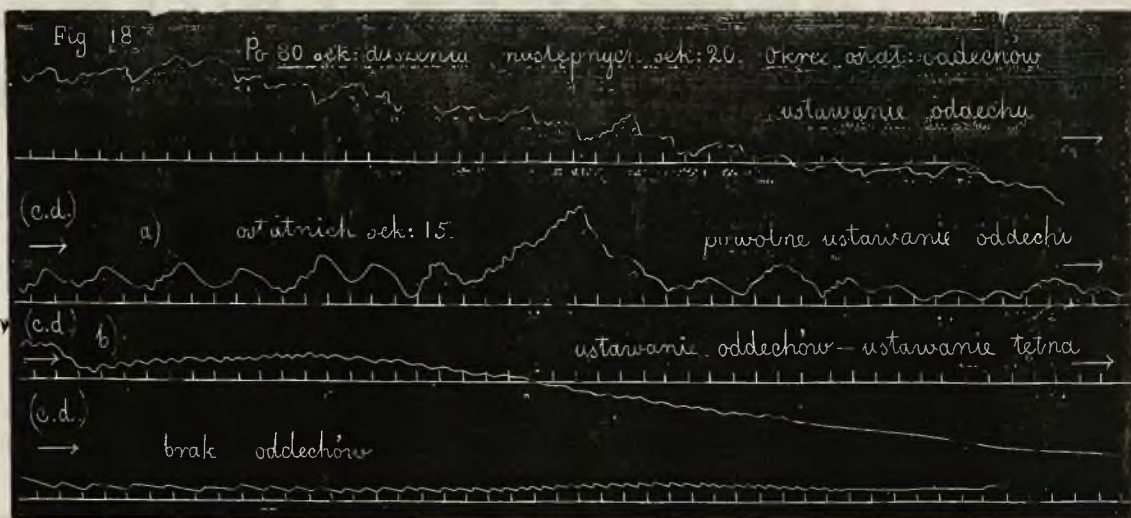 Fig 18
Po 80 sek: duszeniu następnych sek: 20. Okres ostat: oddechów
ustawanie oddechu
(c.d.)
a) ostatnich sek: 15.
powolne ustawanie oddechu
(c.d.) b)
ustawanie oddechów – ustawanie tętna
(c.d.)
brak oddechów